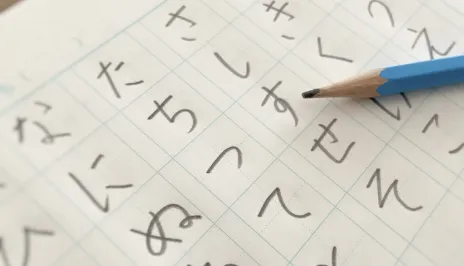 え
きく
さしすせ
たちつて
なにぬ